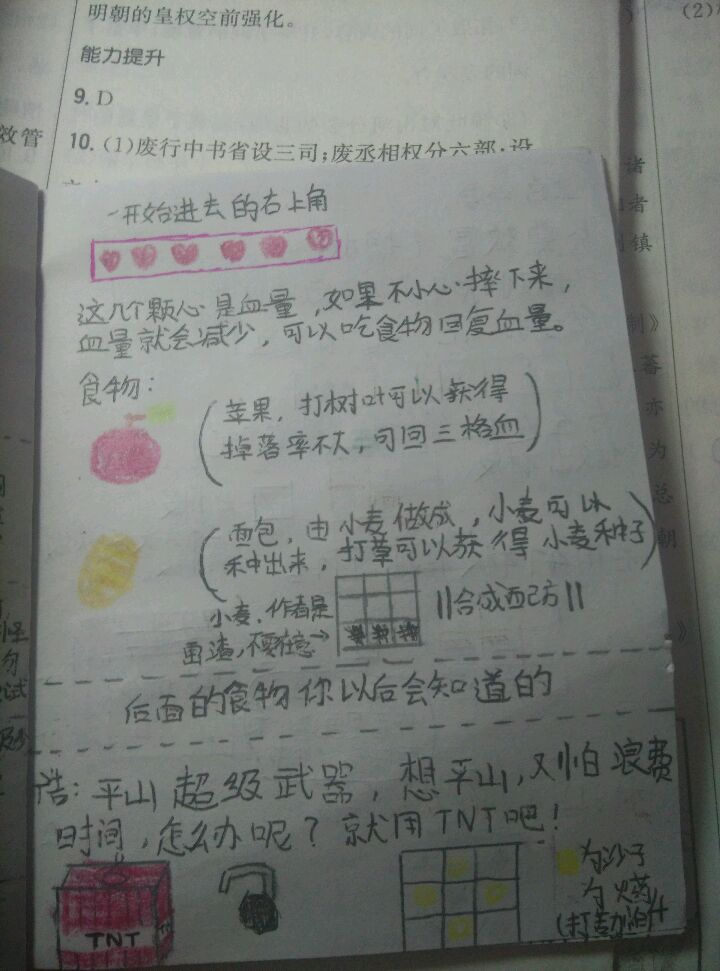 明朝的皇权空前强化。
能力提升
9. D
10. (1)废行中书省设三司;废丞相权分六部;设
(2)
效管
诸
者
镇
制》
蕃
亦
为
总
朝
》
一开始进去的右上角
这几个颗心是血量,如果不小心摔下来,
血量就会减少,可以吃食物回复血量。
食物:
(苹果,打树叶可以获得
掉落率不大,可回三格血)
(面包,由小麦做成,小麦可以
种出来,打草可以获得小麦种子)
小麦,作者是
画渣,不要在意→
||合成配方||
后面的食物你以后会知道的
浩:平山超级武器,想平山,又怕浪费
时间,怎么办呢?就用TNT吧!
TNT
为沙子
为火药